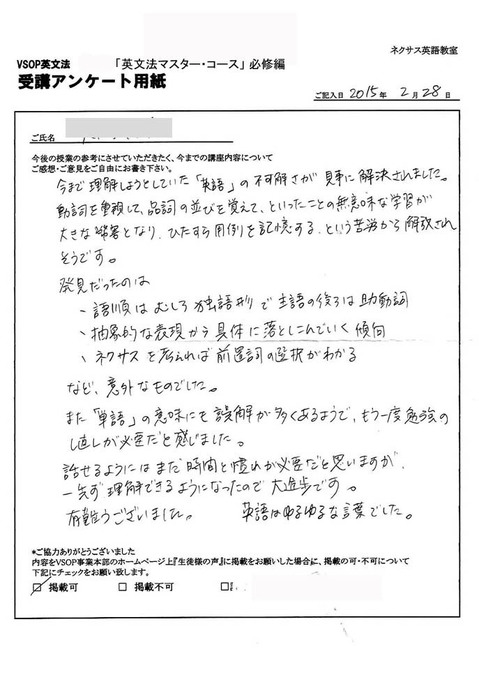 ネクサス英語教室
VSOP英文法 「英文法マスター・コース」必修編
受講アンケート用紙
ご記入日 2015年 2月 28日
ご氏名
今後の授業の参考にさせていただきたく、今までの講座内容について
ご感想・ご意見をご自由にお書き下さい。
今まで理解しようとしていた「英語」の不可解さが見事に解決されました。
動詞を重視して、品詞の並びを覚えて、といったことの無意味な学習が
大きな弊害となり、ひたすら用例を記憶する、という苦労から解放され
そうです。
発見だったのは
、語順はむしろ独語形で主語の後ろは助動詞
、抽象的な表現から具体に落としこんでいく傾向
、ネクサスを考えれば前置詞の選択がわかる
など、意外なものでした。
また「単語」の意味にも誤解が多くあるようで、もう一度勉強の
し直しが必要だと感じました。
話せるようにはまだ時間と慣れが必要だと思いますが、
一先ず理解できるようになったので大進歩です。
有難うございました。 英語はゆるゆるな言葉でした。
*ご協力ありがとうございました
内容をVSOP事業本部のホームページ上『生徒様の声』に掲載をお願いした場合に、掲載の可・不可について
下記にチェックをお願い致します。
☑ 掲載可 □ 掲載不可 □